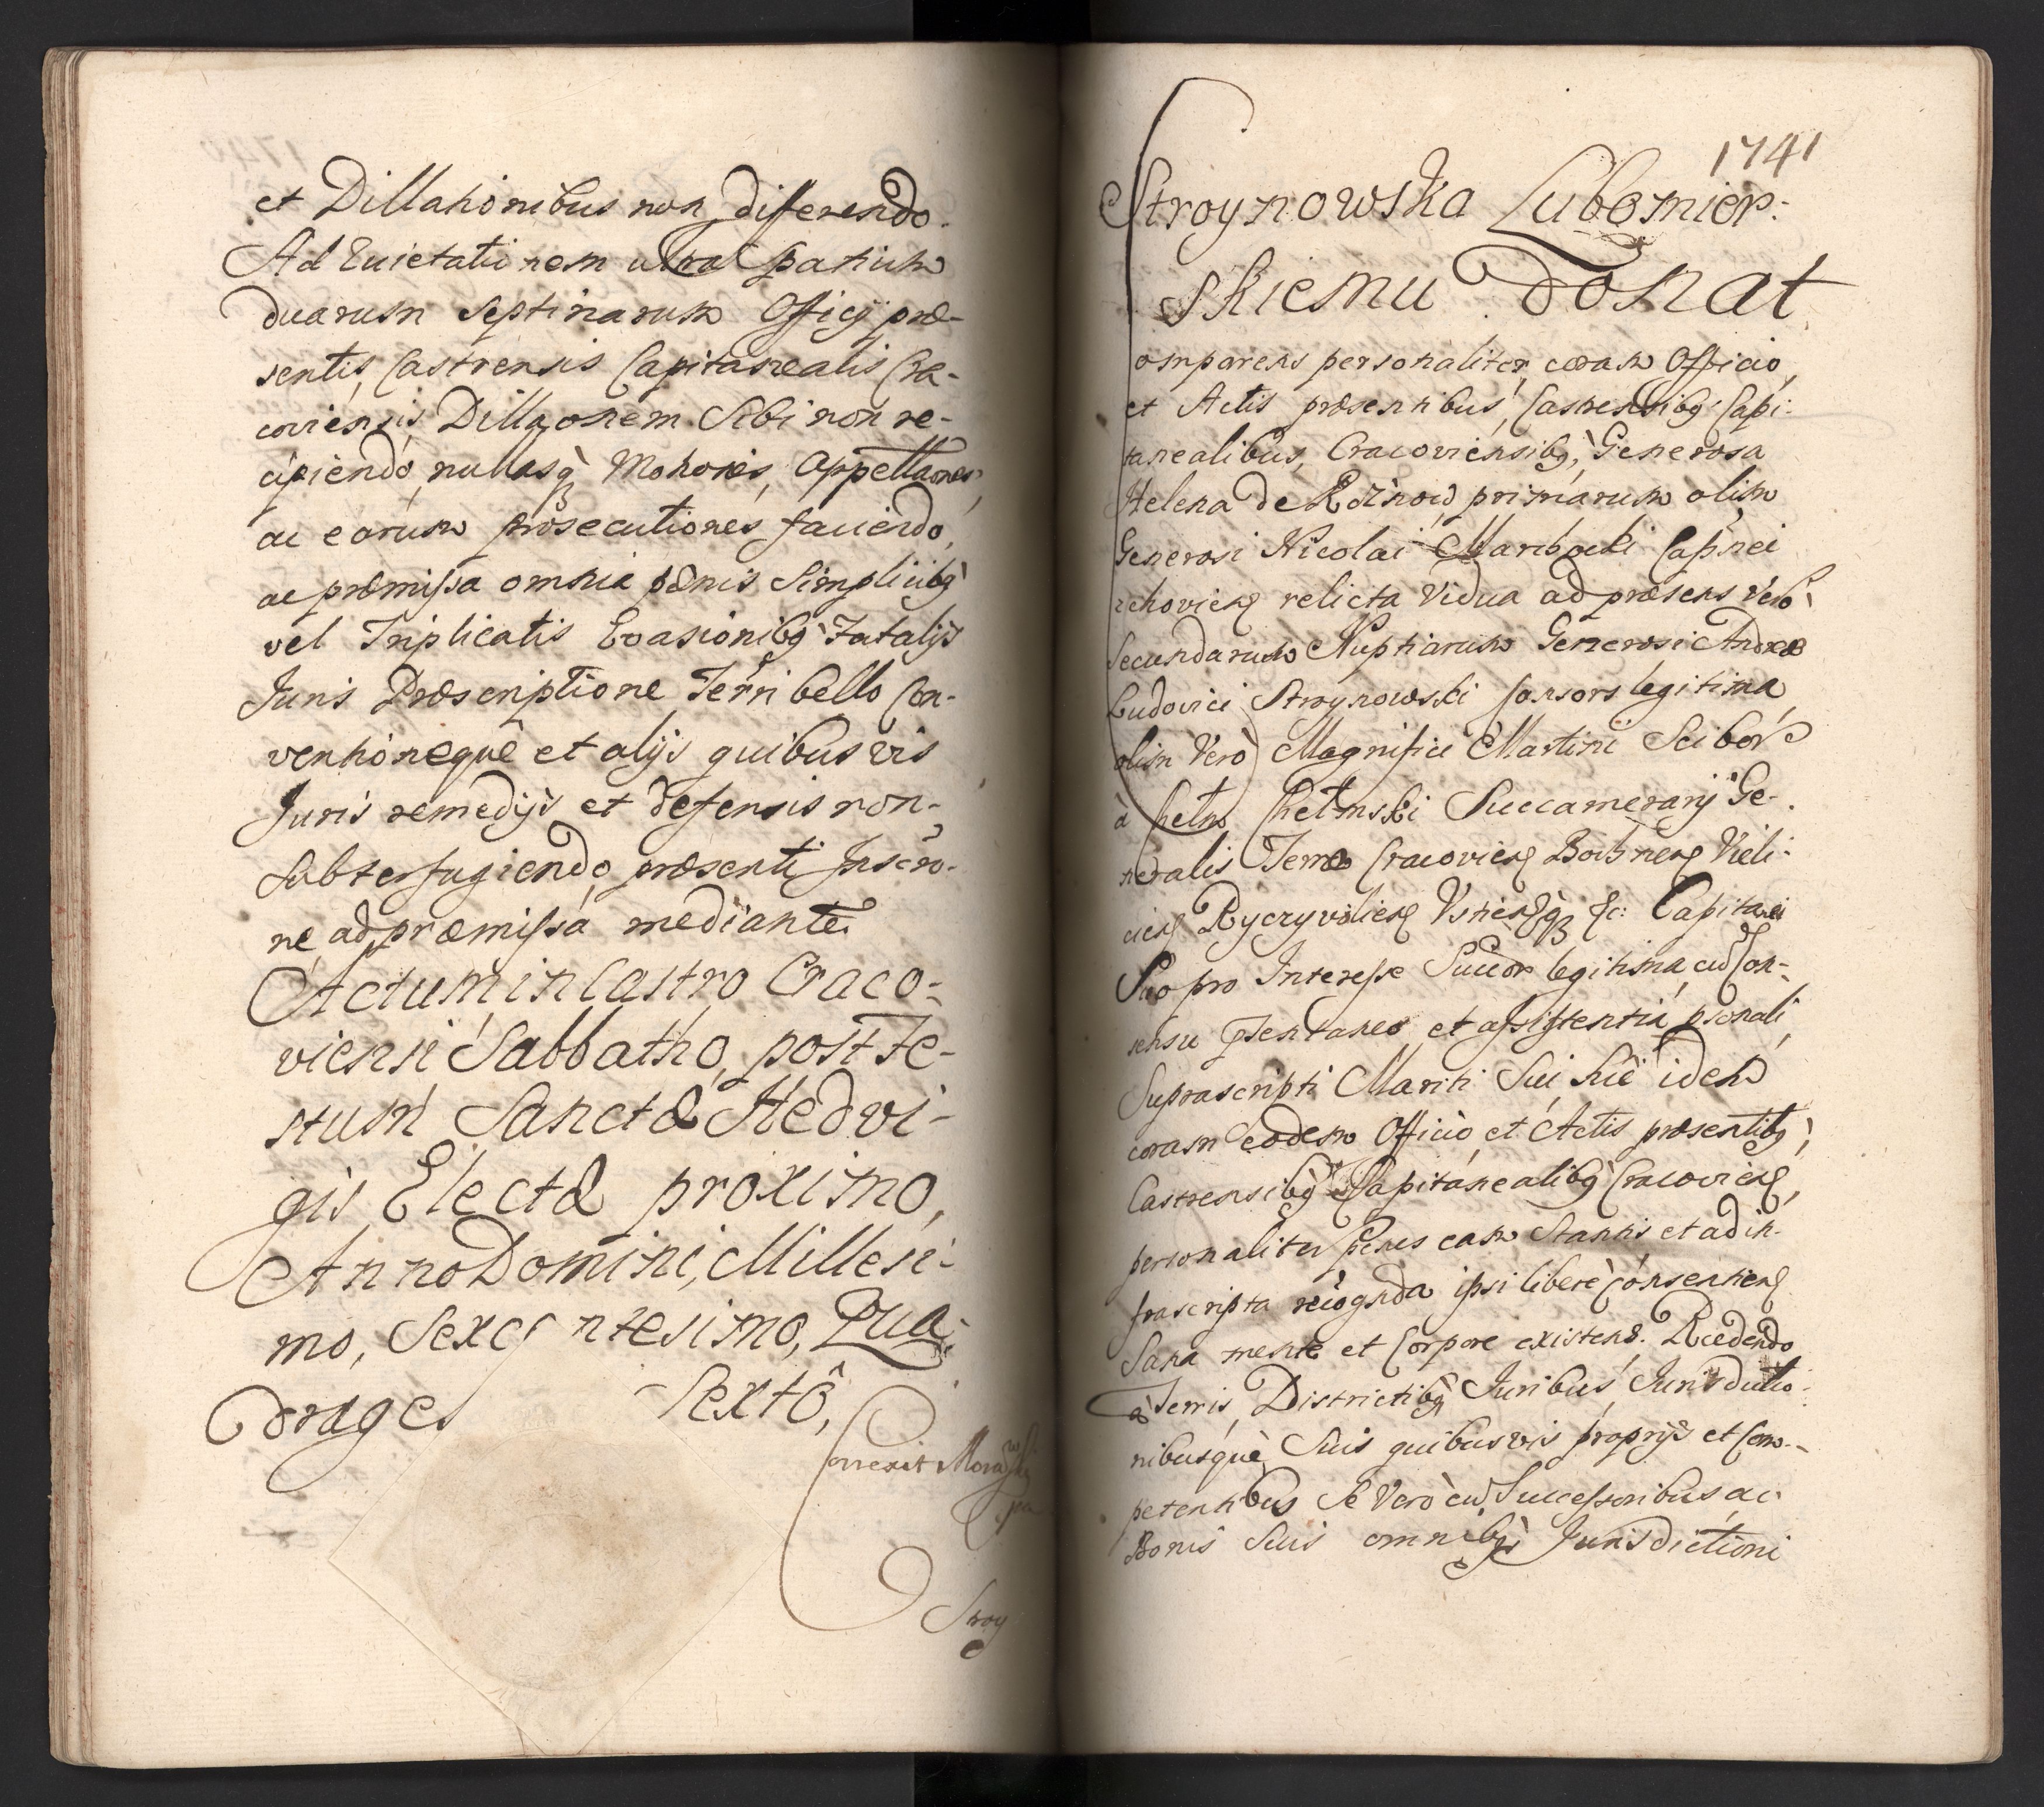 et Dillationibus non differendo.
Ad Evictationem ultra spatium
duarum Septimanarum Officij præ-
sentis, Castrensis Capitanealis Cra-
coviensis, Dillaonem Sibi non re-
cipiendo, nullasq; Motiones, Appellaones,
ac earum prosecutiones faciendo,
ac præmissa omnia pænis Simplicibq
vel Triplicatis Evasionibq Fatalijs
Juris Præscriptione Terri bello Con-
ventioneque et alijs quibusvis
Juris remedijs et defensis non-
Subterfugiendo præsenti Inscro-
ne ad præmissa mediante.
Actum in Castro Craco-
viensi Sabbatho, post Fe-
stum Sanctæ Hedvi-
gis Electæ proximo,
Anno Domini, Millesi-
mo, Sexcentesimo, Qua-
drages Sextô,
Correxit
Stroy
1741
Stroynowska Lubomier:
skiemu Donat
omparens personaliter coram Officio,
et Actis præsentibus, Castrensibq Capi-
tanealibus, Cracoviensibq, Generosa
Helena de primarum olim
Generosi Nicolai Capnei
relicta Vidua ad præsens Verò
Secundarum Nuptiarum Generosi Andreæ
Ludovici Stroynowski Consors legitima,
olim Verò Magnifici Martini Scibor
à Chełm Chełmski Succamerarij Ge-
neralis Terræ Cracovien Bochnen Vieli-
cien Rycryvolien Vstienq; &c: Capitanei
Suo pro Interesse Succor legitima, cu Con-
sensu psentaneo et assistentia psonali
Suprascripti Mariti Sui hic idem
coram eodem Officio et Actis præsentibq,
Castrensibq Capitanealibq Cracovien,
personaliter penes eam Stantis et ad in-
frascripta recognda ipsi liberè consentien
Sana mente et Corpore existens. Recedendo
à Terris, Districtibq Juribus, Jurisdictio-
nibusquè Suis quibusvis proprijs et Com-
petentibus Se Verò cu Successoribus ac
Bonis Suis omnibq Jurisdictioni